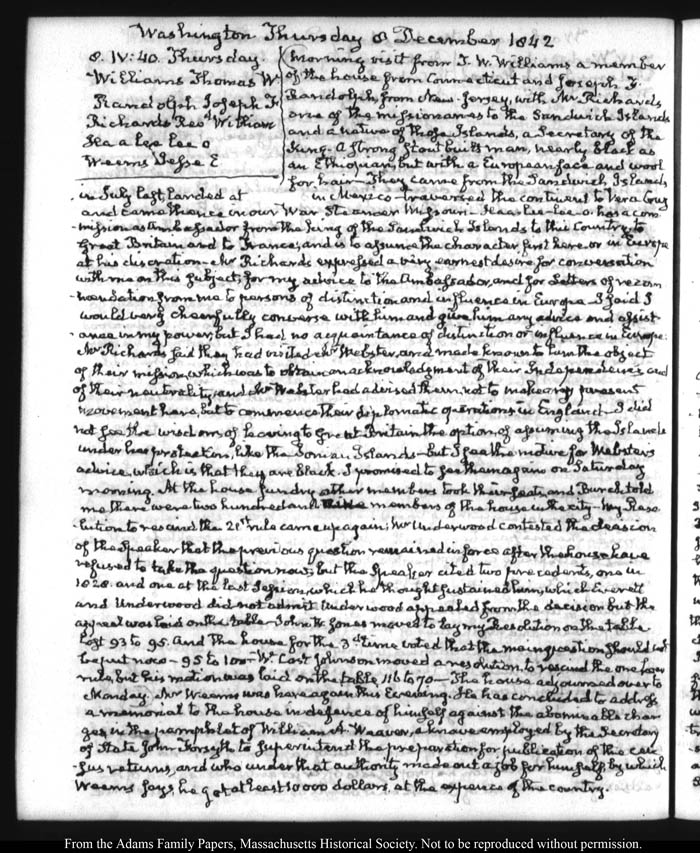 Washington Thursday 8 December 1842
8. IV:40. Thursday
Williams Thomas W
Randolph Joseph F.
Richards Revd William
Haalilio
Weems Jesse E
Morning visit from T. W. Williams a member
of the house from Connecticut and Joseph F.
Randolph, from New-Jersey, with Mr Richards
one of the missionaries to the Sandwich Islands
and a native of those Islands, a Secretary of the
King. A strong stout built man, nearly black as
an Ethiopian, but with a European face and wool
for hair. They came from the Sandwich Islands
in July last, landed at in Mexico traversed the continent to Vera Cruz
and came thence in our War Steamer Missouri. has a com
-mission as Ambassador from the King of the Sandwich Islands to this Country, to
Great Britain and to France, and is to assume the character first here or in Europe
at his discretion. Mr Richards expressed a very earnest desire for conversation
with me on this subject, for my advice to the Ambassador, and for Letters of recom
-mendation from me to persons of distinction and influence in Europe. I said I
would very cheerfully converse with him and give him any advice and assist
-ance in my power, but I had no acquaintance of distinction or influence in Europe.
Mr Richards said they had visited Mr Webster, and made known to him the object
of their mission, which was to obtain an acknowledgment of their Independence and
of their neutrality, and Mr Webster had advised them not to make any present
movement here, but to commence their diplomatic operations in England. I did
not see the wisdom of leaving to Great Britain the option, of assuming the Islands
under her protection, like the Ionian Islands—but I see the motive for Webster's
advice, which is that they are black. I promised to see them again on Saturday
morning. At the house sundry other members took their seats, and Burch told
me there were two hundred and members of the house in the city. My Reso
-lution to rescind the 21st rule came up again; Mr Underwood contested the decision
of the Speaker that the previous question remained in force after the house have
refused to take the question now; but the Speaker cited two precedents, one in
1828 and one at the last Session, which he thought sustained him, which Everett
and Underwood did not admit. Underwood appealed from the decision but the
appeal was laid on the table. John W. Jones moved to lay my Resolution on the table
lost 93 to 95. And the house for the 3d time voted that the main question should not
be put now—95 to 100—Wm Cost Johnson moved a resolution, to rescind the one hour
rule, but his motion was laid on the table 116 to 70—The house adjourned over to
Monday. Mr Weems was here again this Evening. He has concluded to address
a memorial to the house in defence of himself against the abominable char
ges in the pamphlet of William A. Weaver, a knave employed by the Secretary
of State John Forsyth to superintend the preparation for publication of the cen
-sus returns, and who under that authority made out a job for himself, by which
Weems says he got at least 10000 dollars, at the expence of the country.
From the Adams Family Papers, Massachusetts Historical Society. Not to be reproduced without permission.